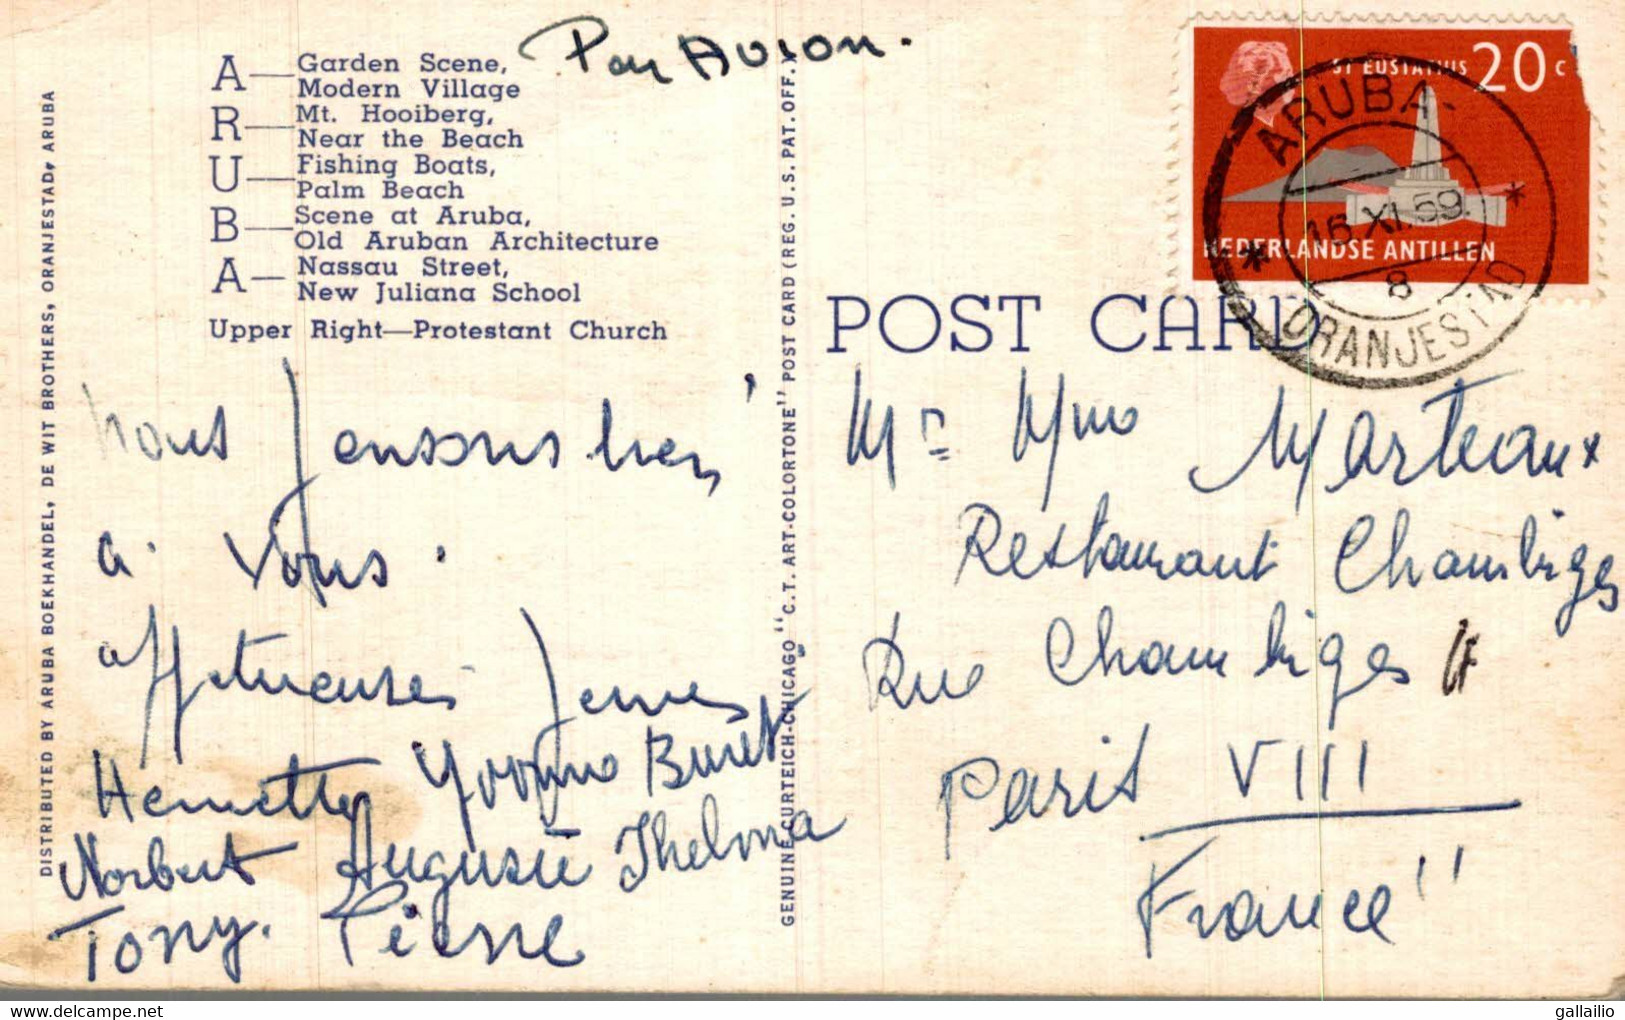 Par Avion.
A — Garden Scene,
Modern Village
R — Mt. Hooiberg,
Near the Beach
U — Fishing Boats,
Palm Beach
B — Scene at Aruba,
Old Aruban Architecture
A — Nassau Street,
New Juliana School
Upper Right—Protestant Church
DISTRIBUTED BY ARUBA BOEKHANDEL, DE WIT BROTHERS, ORANJESTAD, ARUBA
nous pensons bien
à vous.
affectueuses
Henriette Yvonne Buret
Norbert Auguste Thelma
Tony. Pierre
GENUINE CURTEICH-CHICAGO "C. T. ART-COLORTONE" POST CARD (REG. U.S. PAT. OFF.)
ST EUSTATIUS 20 c
NEDERLANDSE ANTILLEN
ARUBA-
16.XI.59.
8
ORANJESTAD
POST CARD
Mr Mme Marteaux
Restaurant Chambiges
Rue Chambiges
Paris VIII
France"
gallailio